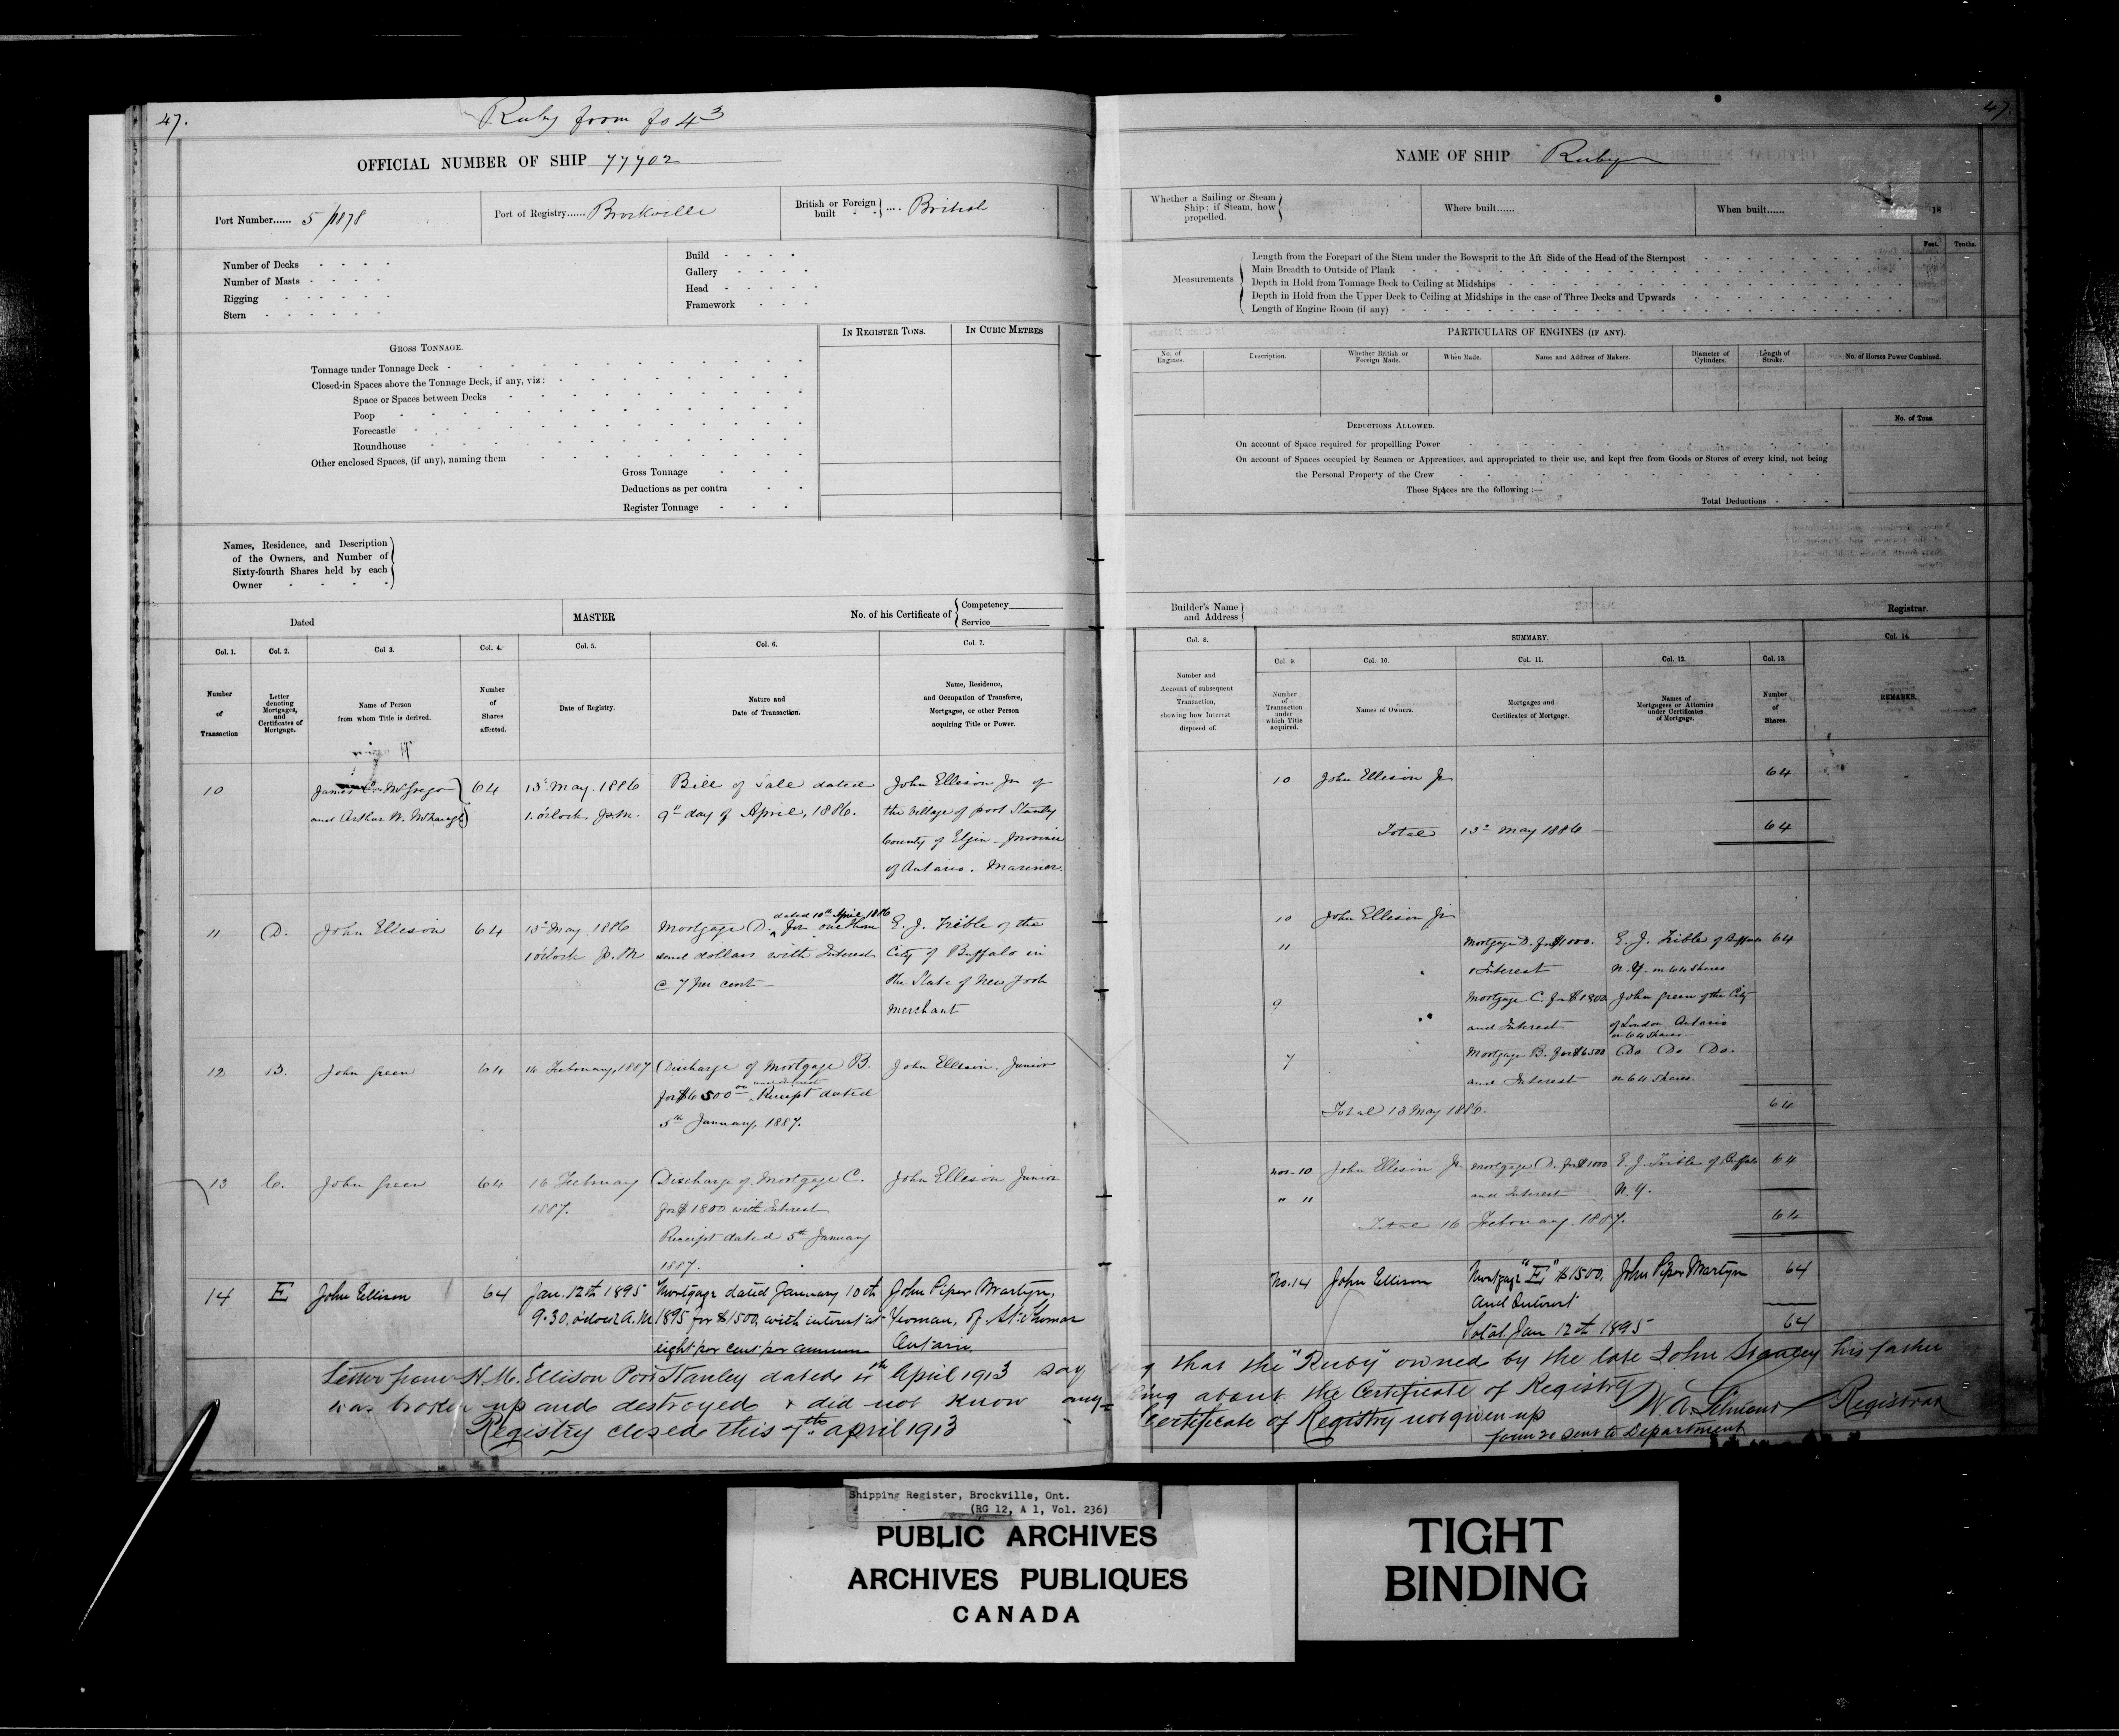 47.
Ruby from fo 43
OFFICIAL NUMBER OF SHIP 77702
Port Number...... 5/1878
Port of Registry...... Brockville
British or Foreign built .... British
Number of Decks
Number of Masts
Rigging
Stern
Build
Gallery
Head
Framework
IN REGISTER TONS.
IN CUBIC METRES
GROSS TONNAGE.
Tonnage under Tonnage Deck
Closed-in Spaces above the Tonnage Deck, if any, viz:
Space or Spaces between Decks
Poop
Forecastle
Roundhouse
Other enclosed Spaces, (if any), naming them
Gross Tonnage
Deductions as per contra
Register Tonnage
Names, Residence, and Description
of the Owners, and Number of
Sixty-fourth Shares held by each
Owner
Dated
MASTER
No. of his Certificate of
Competency
Service
Col. 1.
Col. 2.
Col 3.
Col. 4.
Col. 5.
Col. 6.
Col. 7.
Number
of
Transaction
Letter
denoting
Mortgages,
and
Certificates of
Mortgage.
Name of Person
from whom Title is derived.
Number
of
Shares
affected.
Date of Registry.
Nature and
Date of Transaction.
Name, Residence,
and Occupation of Transferee,
Mortgagee, or other Person
acquiring Title or Power.
10
James McGregor
and Arthur W.
64
13 May. 1886
1. o'clock P.M.
Bill of Sale dated
9th day of April, 1886.
John Ellison Jr of
the Village of port Stanley
County of Elgin - Province
of Ontario. Mariner.
11
D.
John Ellison
64
13 May 1886
1 o'clock P.M
dated 10th April 1886
Mortgage D. for one thou
sand dollars with Interest
@ 7 per cent -
E. J. Trible of the
City of Buffalo in
the State of New York
Merchant
12
B.
John Green
64
16 February, 1887
Discharge of Mortgage B.
and interest
for $6500 00 Receipt dated
5th January, 1887.
John Ellison. Junior
13
C.
John Green
64
16 February
1887.
Discharge of Mortgage C.
for $1800 with Interest
Receipt dated 5th January
1887.
John Ellison Junior
14
E
John Ellison
64
Jan. 12th 1895
9.30, o'clock A.M
Mortgage dated January 10th
1895 for $1500, with interest at
eight per cent per annum
John Piper Martyn,
Yeoman, of St. Thomas
Ontario
47.
NAME OF SHIP Ruby
Whether a Sailing or Steam
Ship; if Steam, how
propelled.
Where built......
When built......
18
Measurements
Feet.
Tenths.
Length from the Forepart of the Stem under the Bowsprit to the Aft Side of the Head of the Sternpost
Main Breadth to Outside of Plank
Depth in Hold from Tonnage Deck to Ceiling at Midships
Depth in Hold from the Upper Deck to Ceiling at Midships in the case of Three Decks and Upwards
Length of Engine Room (if any)
PARTICULARS OF ENGINES (IF ANY).
No. of
Engines.
Description.
Whether British or
Foreign Made.
When Made.
Name and Address of Makers.
Diameter of
Cylinders.
Length of
Stroke.
No. of Horses Power Combined.
DEDUCTIONS ALLOWED.
No. of Tons.
On account of Space required for propelling Power
On account of Spaces occupied by Seamen or Apprentices, and appropriated to their use, and kept free from Goods or Stores of every kind, not being
the Personal Property of the Crew
These Spaces are the following :—
Total Deductions
Builder's Name
and Address
Registrar.
Col. 8.
SUMMARY.
Col. 14.
Col. 9.
Col. 10.
Col. 11.
Col. 12.
Col. 13.
Number and
Account of subsequent
Transaction,
showing how Interest
disposed of.
Number
of
Transaction
under
which Title
acquired.
Names of Owners.
Mortgages and
Certificates of Mortgage.
Names of
Mortgagees or Attornies
under Certificates
of Mortgage.
Number
of
Shares.
REMARKS.
10 John Ellison Jr 64
Total 13 May 1886 — 64
10 John Ellison Jr
11 Mortgage D. for $1000. E. J. Trible of Buffalo 64
& Interest N.Y. on 64 Shares
9 Mortgage C. for $1800 John Green of the City
and Interest of London Ontario
on 64 Shares
7 Mortgage B. for $6500 Do Do Do.
and Interest on 64 Shares.
Total 13 May 1886. 64
Nos. 10 John Ellison Jr. Mortgage D. for $1000 E. J. Trible of Buffalo 64
" 11 and Interest N.Y.
Total 16 February. 1887. 64
No. 14 John Ellison Mortgage "E" $1500. John Piper Martyn 64
and Interest
Total Jan 12th 1895 64
Letter from H. M. Ellison Port Stanley dated April 1913 saying that the "Ruby" owned by the late John Stanley his father
was broken up and destroyed & did not know any=thing about the Certificate of Registry W. A. Registrar
Registry closed this 7th april 1913 Certificate of Registry not given up
form 20 sent to Department
Shipping Register, Brockville, Ont.
(RG 12, A 1, Vol. 236)
PUBLIC ARCHIVES
ARCHIVES PUBLIQUES
CANADA
TIGHT
BINDING